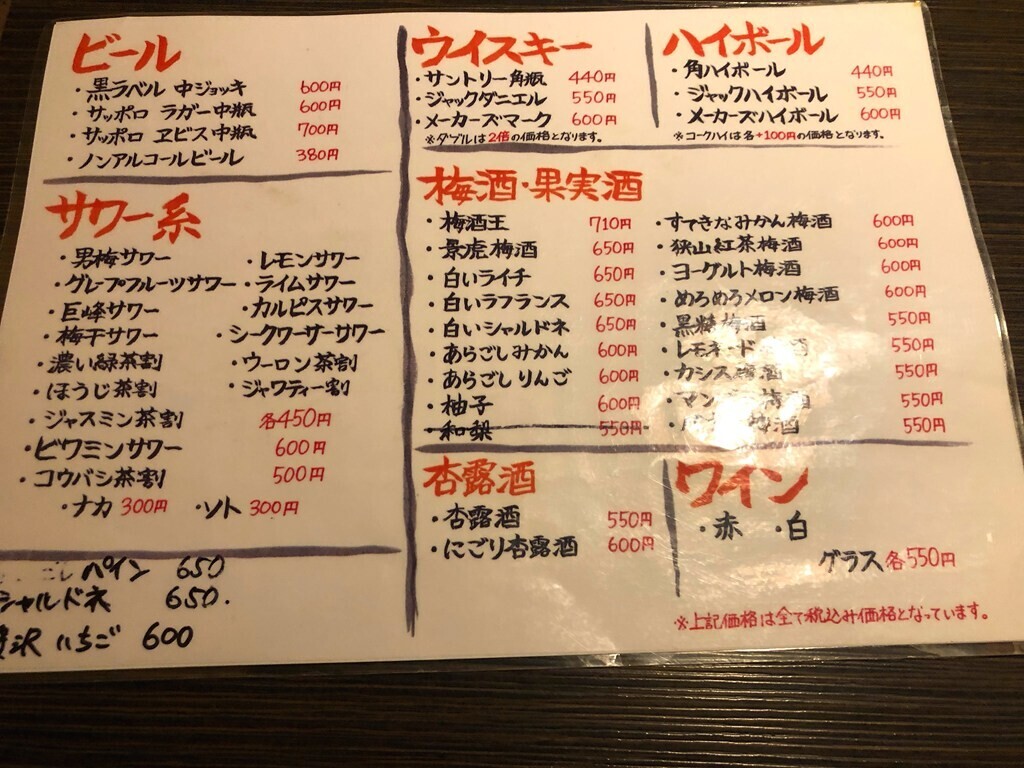 ビール
・黒ラベル 中ジョッキ 600円
・サッポロ ラガー中瓶 600円
・サッポロ ヱビス中瓶 700円
・ノンアルコールビール 380円
サワー系
・男梅サワー ・レモンサワー
・グレープフルーツサワー ・ライムサワー
・巨峰サワー ・カルピスサワー
・梅干サワー ・シークワーサーサワー
・濃い緑茶割 ・ウーロン茶割
・ほうじ茶割 ・ジャワティー割
・ジャスミン茶割 各450円
・ビワミンサワー 600円
・コウバシ茶割 500円
・ナカ 300円 ・ソト 300円
パイン 650
シャルドネ 650.
贅沢 いちご 600
ウイスキー
・サントリー角瓶 440円
・ジャックダニエル 550円
・メーカーズ・マーク 600円
※ダブルは2倍の価格となります。
ハイボール
・角ハイボール 440円
・ジャックハイボール 550円
・メーカーズハイボール 600円
※コークハイは各+100円の価格となります。
梅酒・果実酒
・梅酒王 710円
・景虎梅酒 650円
・白いライチ 650円
・白いラフランス 650円
・白いシャルドネ 650円
・あらごしみかん 600円
・あらごしりんご 600円
・柚子 600円
・和梨 550円
・すてきなみかん梅酒 600円
・狭山紅茶梅酒 600円
・ヨーグルト梅酒 600円
・めろめろメロン梅酒 600円
・黒糖梅酒 550円
・レモネード 550円
・カシス梅酒 550円
・マンゴー梅酒 550円
梅酒 550円
杏露酒
・杏露酒 550円
・にごり杏露酒 600円
ワイン
・赤 ・白
グラス各550円
※上記価格は全て税込み価格となっています。